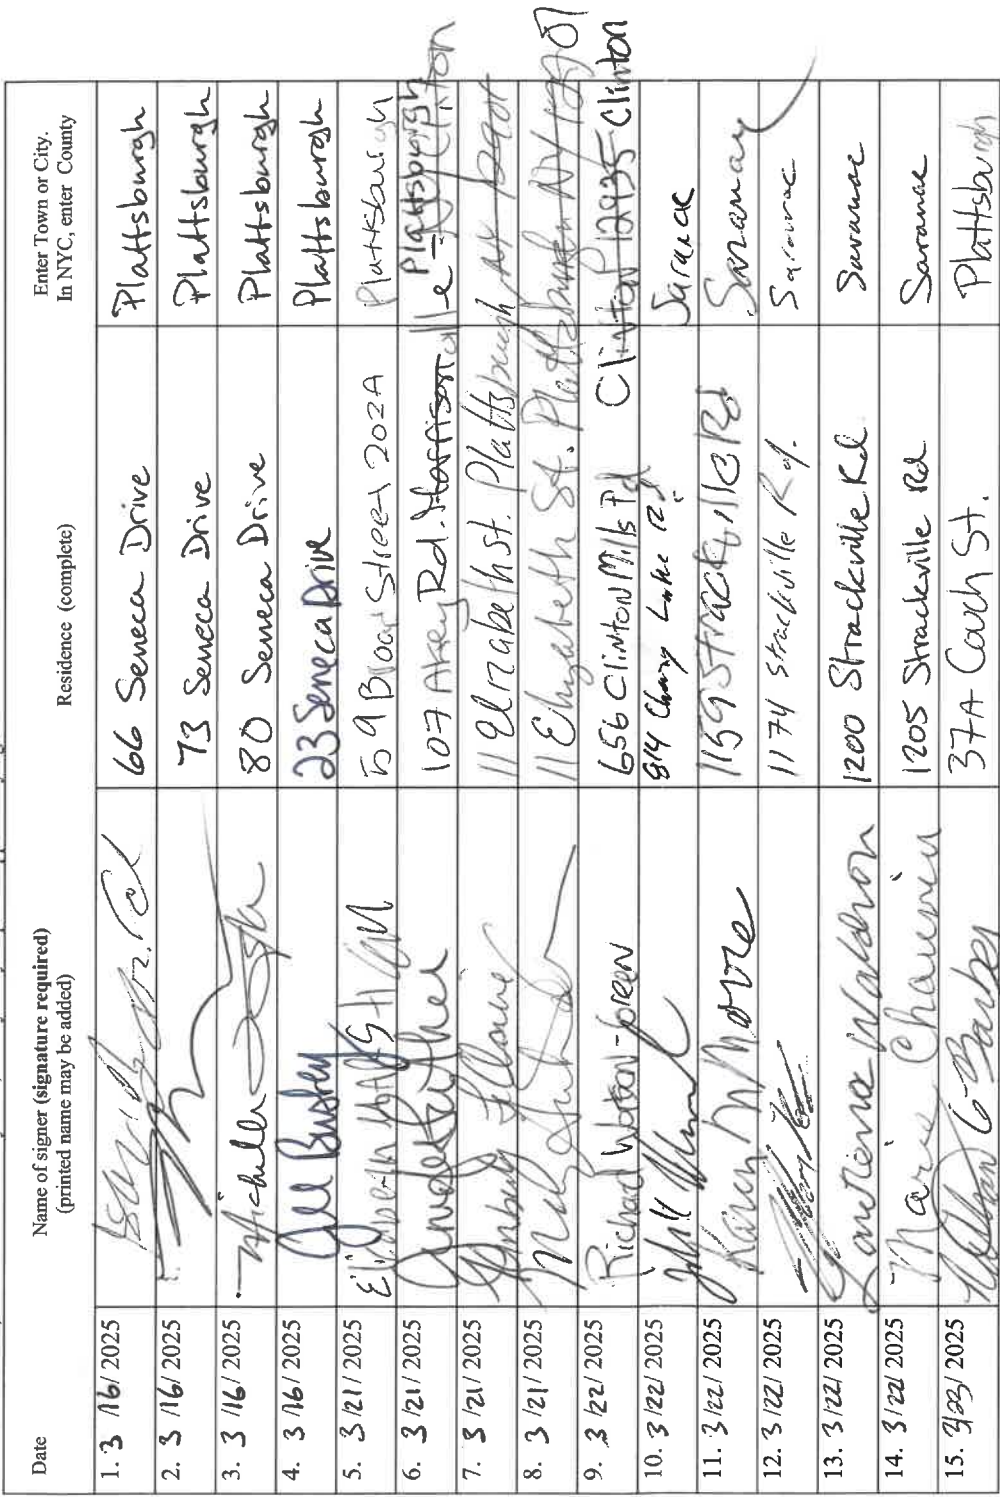 Date Name of signer (signature required) (printed name may be added) Residence (complete) Enter Town or City. In NYC, enter County
1. 3/16/2025 66 Seneca Drive Plattsburgh
2. 3/16/2025 73 Seneca Drive Plattsburgh
3. 3/16/2025 Michelle 80 Seneca Drive Plattsburgh
4. 3/16/2025 Jill 23 Seneca Drive Plattsburgh
5. 3/21/2025 59 Broad Street 202A Plattsburgh
6. 3/21/2025 107 Akey Rd. Plattsburgh
7. 3/21/2025 11 Elizabeth St. Plattsburgh NY
8. 3/21/2025 11 Elizabeth St. Plattsburgh NY
9. 3/22/2025 Richard Watson-Green 656 Clinton Mills Rd Clinton 12935 Clinton
10. 3/22/2025 814 Chazy Lake Rd. Saranac
11. 3/22/2025 Karen M Moore 1159 Strackville Rd Saranac
12. 3/22/2025 1174 Strackville Rd. Saranac
13. 3/22/2025 Waldron 1200 Strackville Rd Saranac
14. 3/22/2025 Marie Chauvin 1205 Strackville Rd Saranac
15. 3/23/2025 G Barber 37A Couch St. Plattsburgh